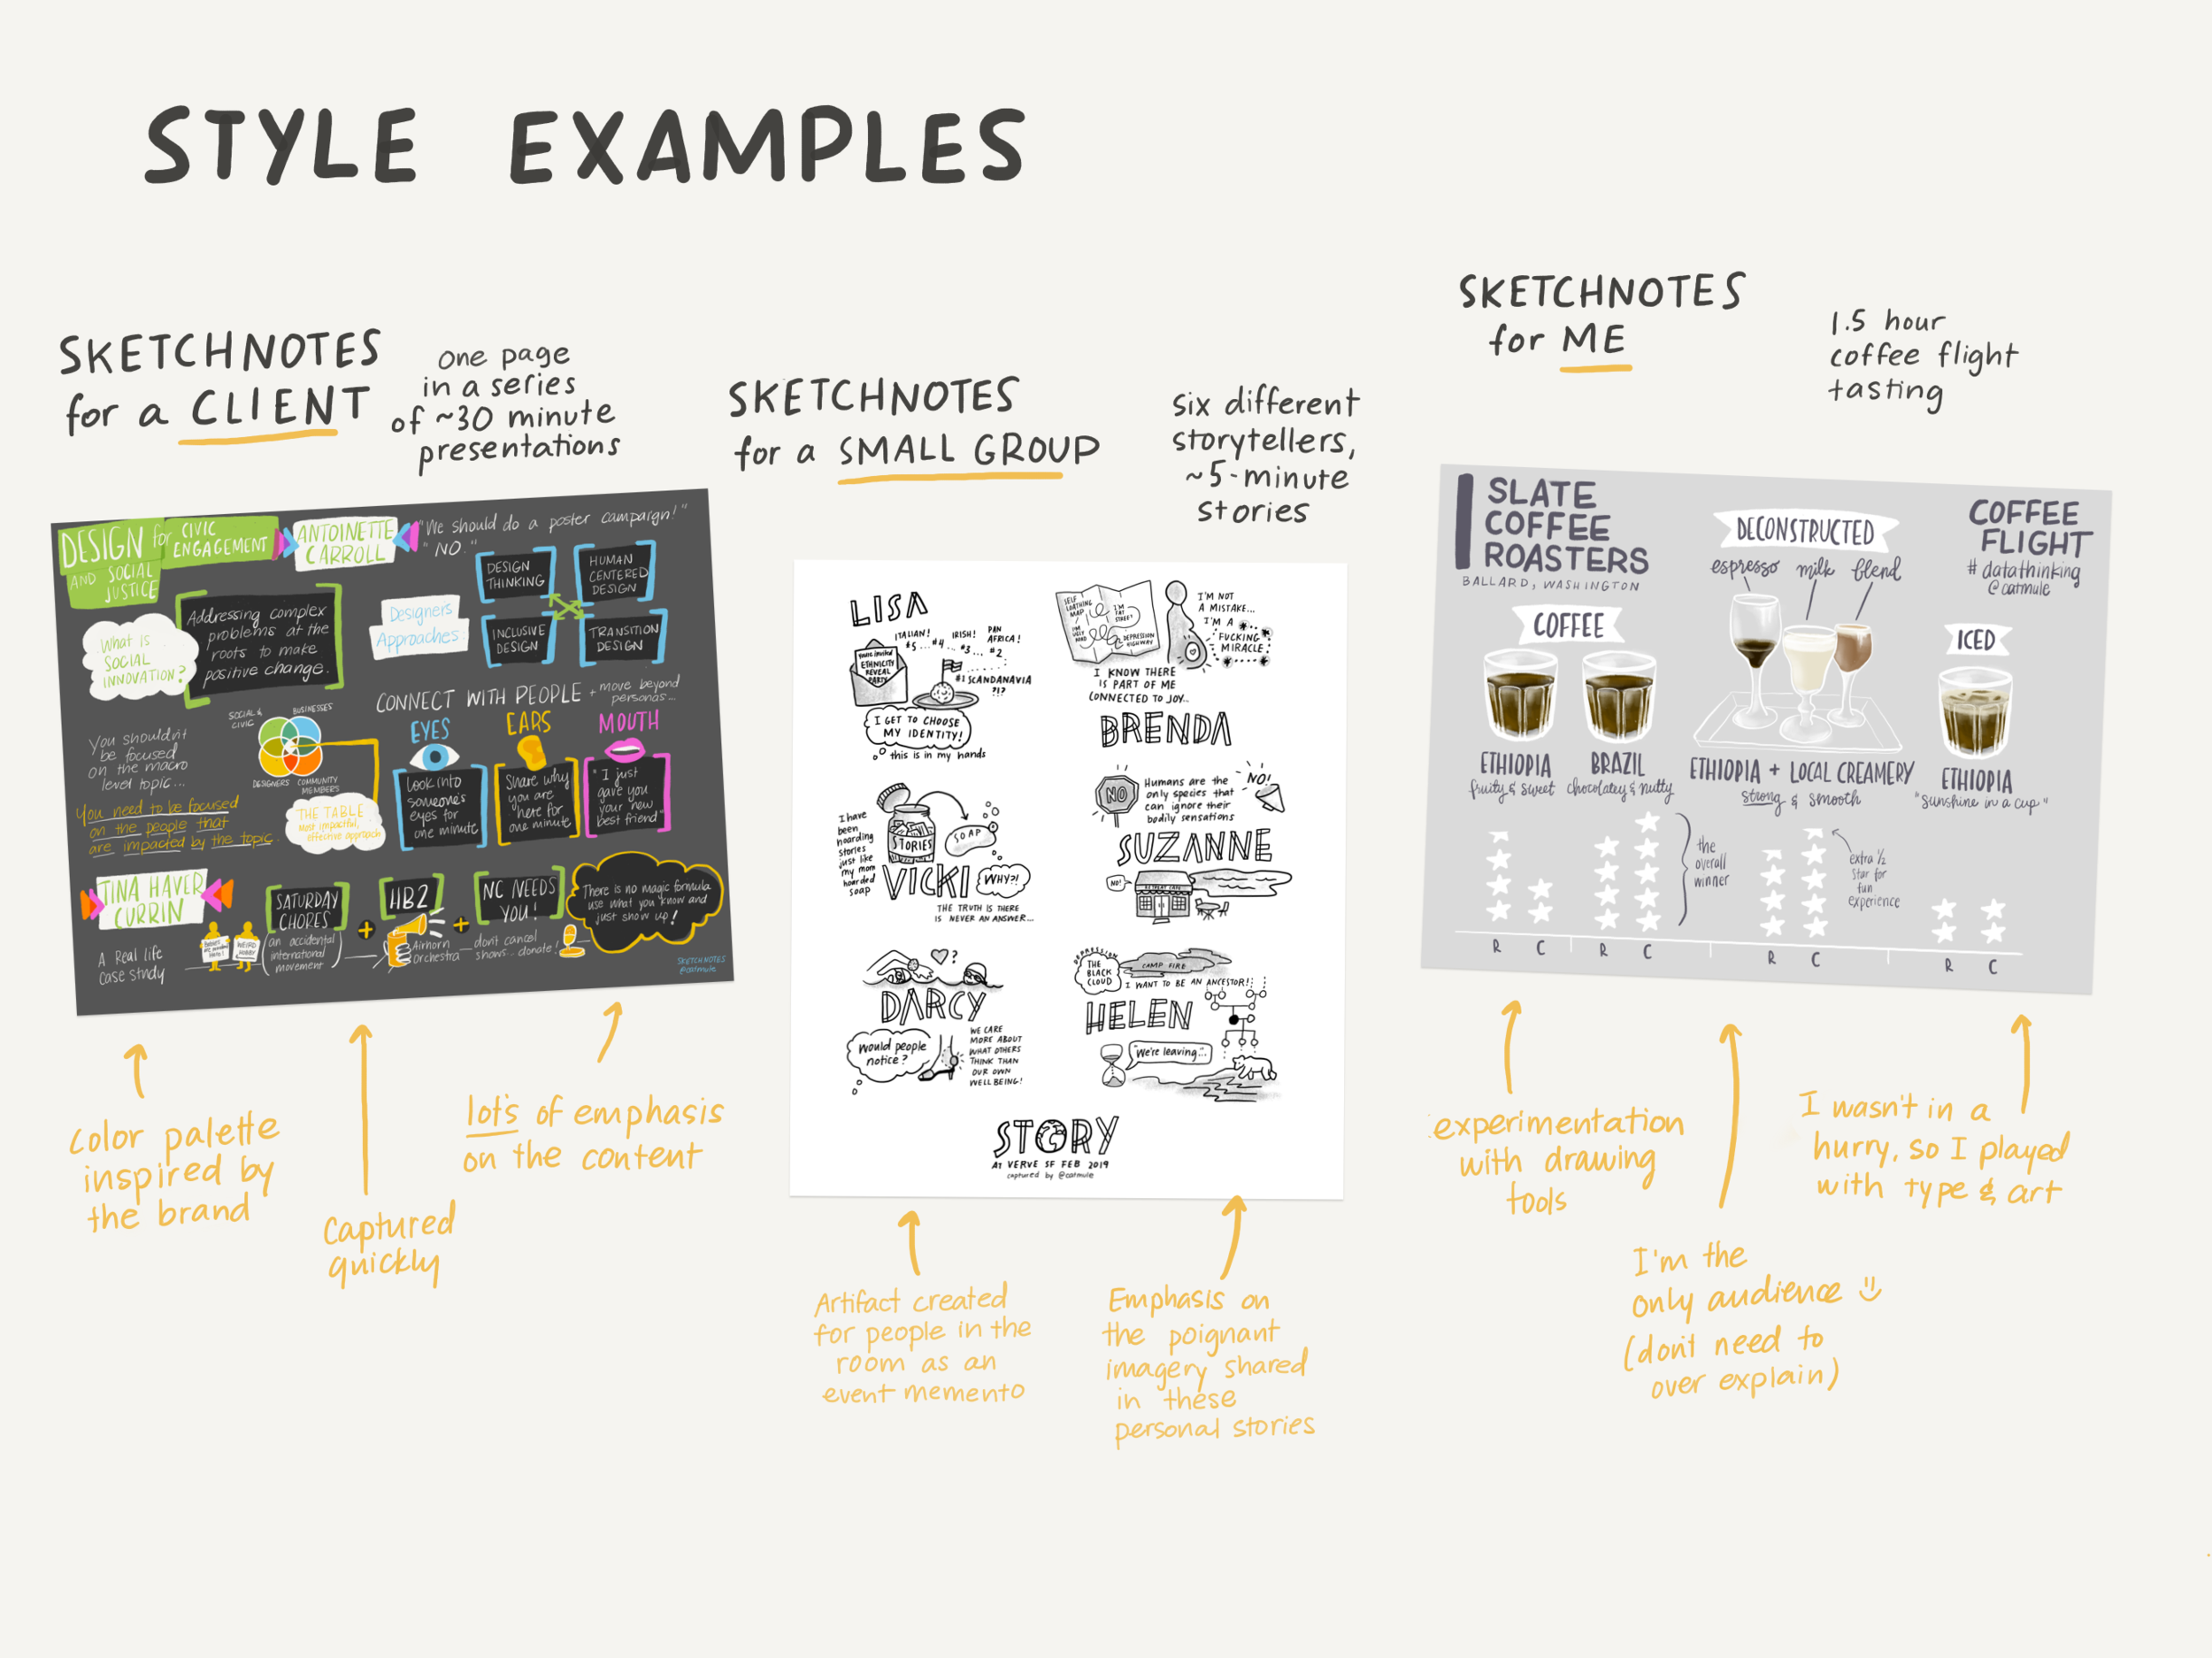 STYLE EXAMPLES
SKETCHNOTES
for a CLIENT
one page
in a series
of ~30 minute
presentations
DESIGN for CIVIC
ENGAGEMENT
AND SOCIAL
JUSTICE
ANTOINETTE
CARROLL
"We should do a poster campaign!"
"NO."
What is
SOCIAL
INNOVATION?
Addressing complex
problems at the
roots to make
positive change.
Designers
Approaches
DESIGN
THINKING
HUMAN
CENTERED
DESIGN
INCLUSIVE
DESIGN
TRANSITION
DESIGN
You shouldn't
be focused
on the macro
level topic...
You need to be focused
on the people that
are impacted by the topic.
SOCIAL &
CIVIC
BUSINESSES
DESIGNERS
COMMUNITY
MEMBERS
THE TABLE
Most impactful,
effective approach
CONNECT WITH PEOPLE + move beyond
personas...
EYES
Look into
someone's
eyes for
one minute
EARS
Share why
you are
here for
one minute
MOUTH
"I just
gave you
your new
best friend"
TINA HAVER
CURRIN
A Real life
case study
WEIRD
SATURDAY
CHORES
(an accidental
international
movement)
HB2
Airhorn
Orchestra
NC NEEDS
YOU!
don't cancel
shows.. donate!
There is no magic formula
use what you know and
just show up!
SKETCHNOTES
@oatmule
color palette
inspired by
the brand
captured
quickly
lot's of emphasis
on the content
SKETCHNOTES
for a SMALL GROUP
six different
storytellers,
~5-minute
stories
LISA
You're Invited
ETHNICITY
REVEAL
PARTY
ITALIAN!
#5...
#4...
IRISH!
#3...
PAN
AFRICA!
#2
#1 SCANDANAVIA
?!?
I GET TO CHOOSE
MY IDENTITY!
this is in my hands
SELF
LOATHING
MAP
I'M
FAT
STREET
I'M
UGLY
ROAD
DEPRESSION
HIGHWAY
I'M NOT
A MISTAKE...
I'M A
FUCKING
MIRACLE
I KNOW THERE
IS PART OF ME
CONNECTED TO JOY...
BRENDA
I have
been
hoarding
stories
just like
my mom
hoarded
soap
STORIES
SOAP
VICKI
WHY?!
THE TRUTH IS THERE
IS NEVER AN ANSWER...
NO
Humans are the
only species that
can ignore their
bodily sensations
NO!
SUZANNE
NO!
DARCY
would people
notice?
WE CARE
MORE ABOUT
WHAT OTHERS
THINK THAN
OUR OWN
WELL BEING!
DEPRESSION
THE
BLACK
CLOUD
CAMP FIRE
I WANT TO BE AN ANCESTOR!
HELEN
"We're leaving..."
STORY
AT VERVE SF FEB 2019
captured by @oatmule
Artifact created
for people in the
room as an
event memento
Emphasis on
the poignant
imagery shared
in these
personal stories
SKETCHNOTES
for ME
1.5 hour
coffee flight
tasting
SLATE
COFFEE
ROASTERS
BALLARD, WASHINGTON
DECONSTRUCTED
espresso milk blend
COFFEE
FLIGHT
# datathinking
@oatmule
COFFEE
ICED
ETHIOPIA
fruity & sweet
BRAZIL
chocolatey & nutty
ETHIOPIA + LOCAL CREAMERY
strong & smooth
ETHIOPIA
"sunshine in a cup"
the
overall
winner
extra 1/2
star for
fun
experience
R C R C R C R C
experimentation
with drawing
tools
I'm the
only audience
(don't need to
over explain)
I wasn't in a
hurry, so I played
with type & art